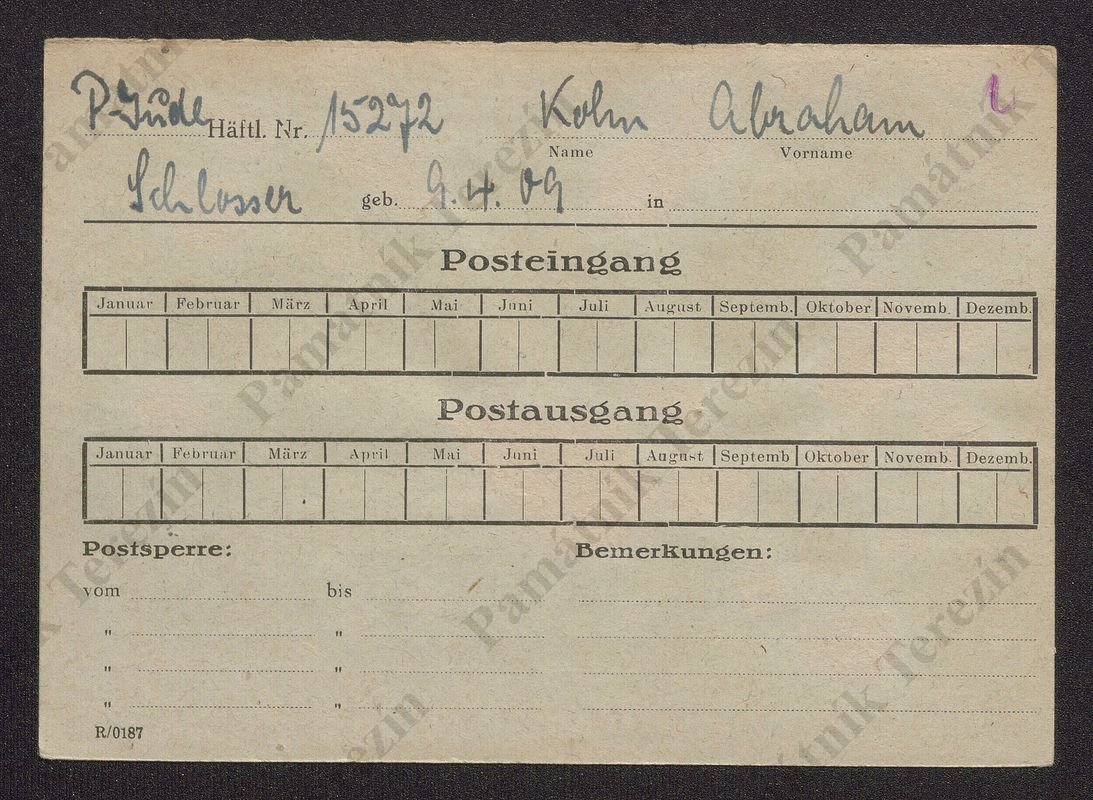 P. Jude Häftl. Nr. 15272 Kohn Abraham
Name Vorname
Schlosser geb. 9.4.09 in
Posteingang
Januar Februar März April Mai Juni Juli August Septemb. Oktober Novemb. Dezemb.
Postausgang
Januar Februar März April Mai Juni Juli August Septemb Oktober Novemb. Dezemb.
Postsperre: Bemerkungen:
vom bis
" "
" "
" "
R/0187
Památník Terezín